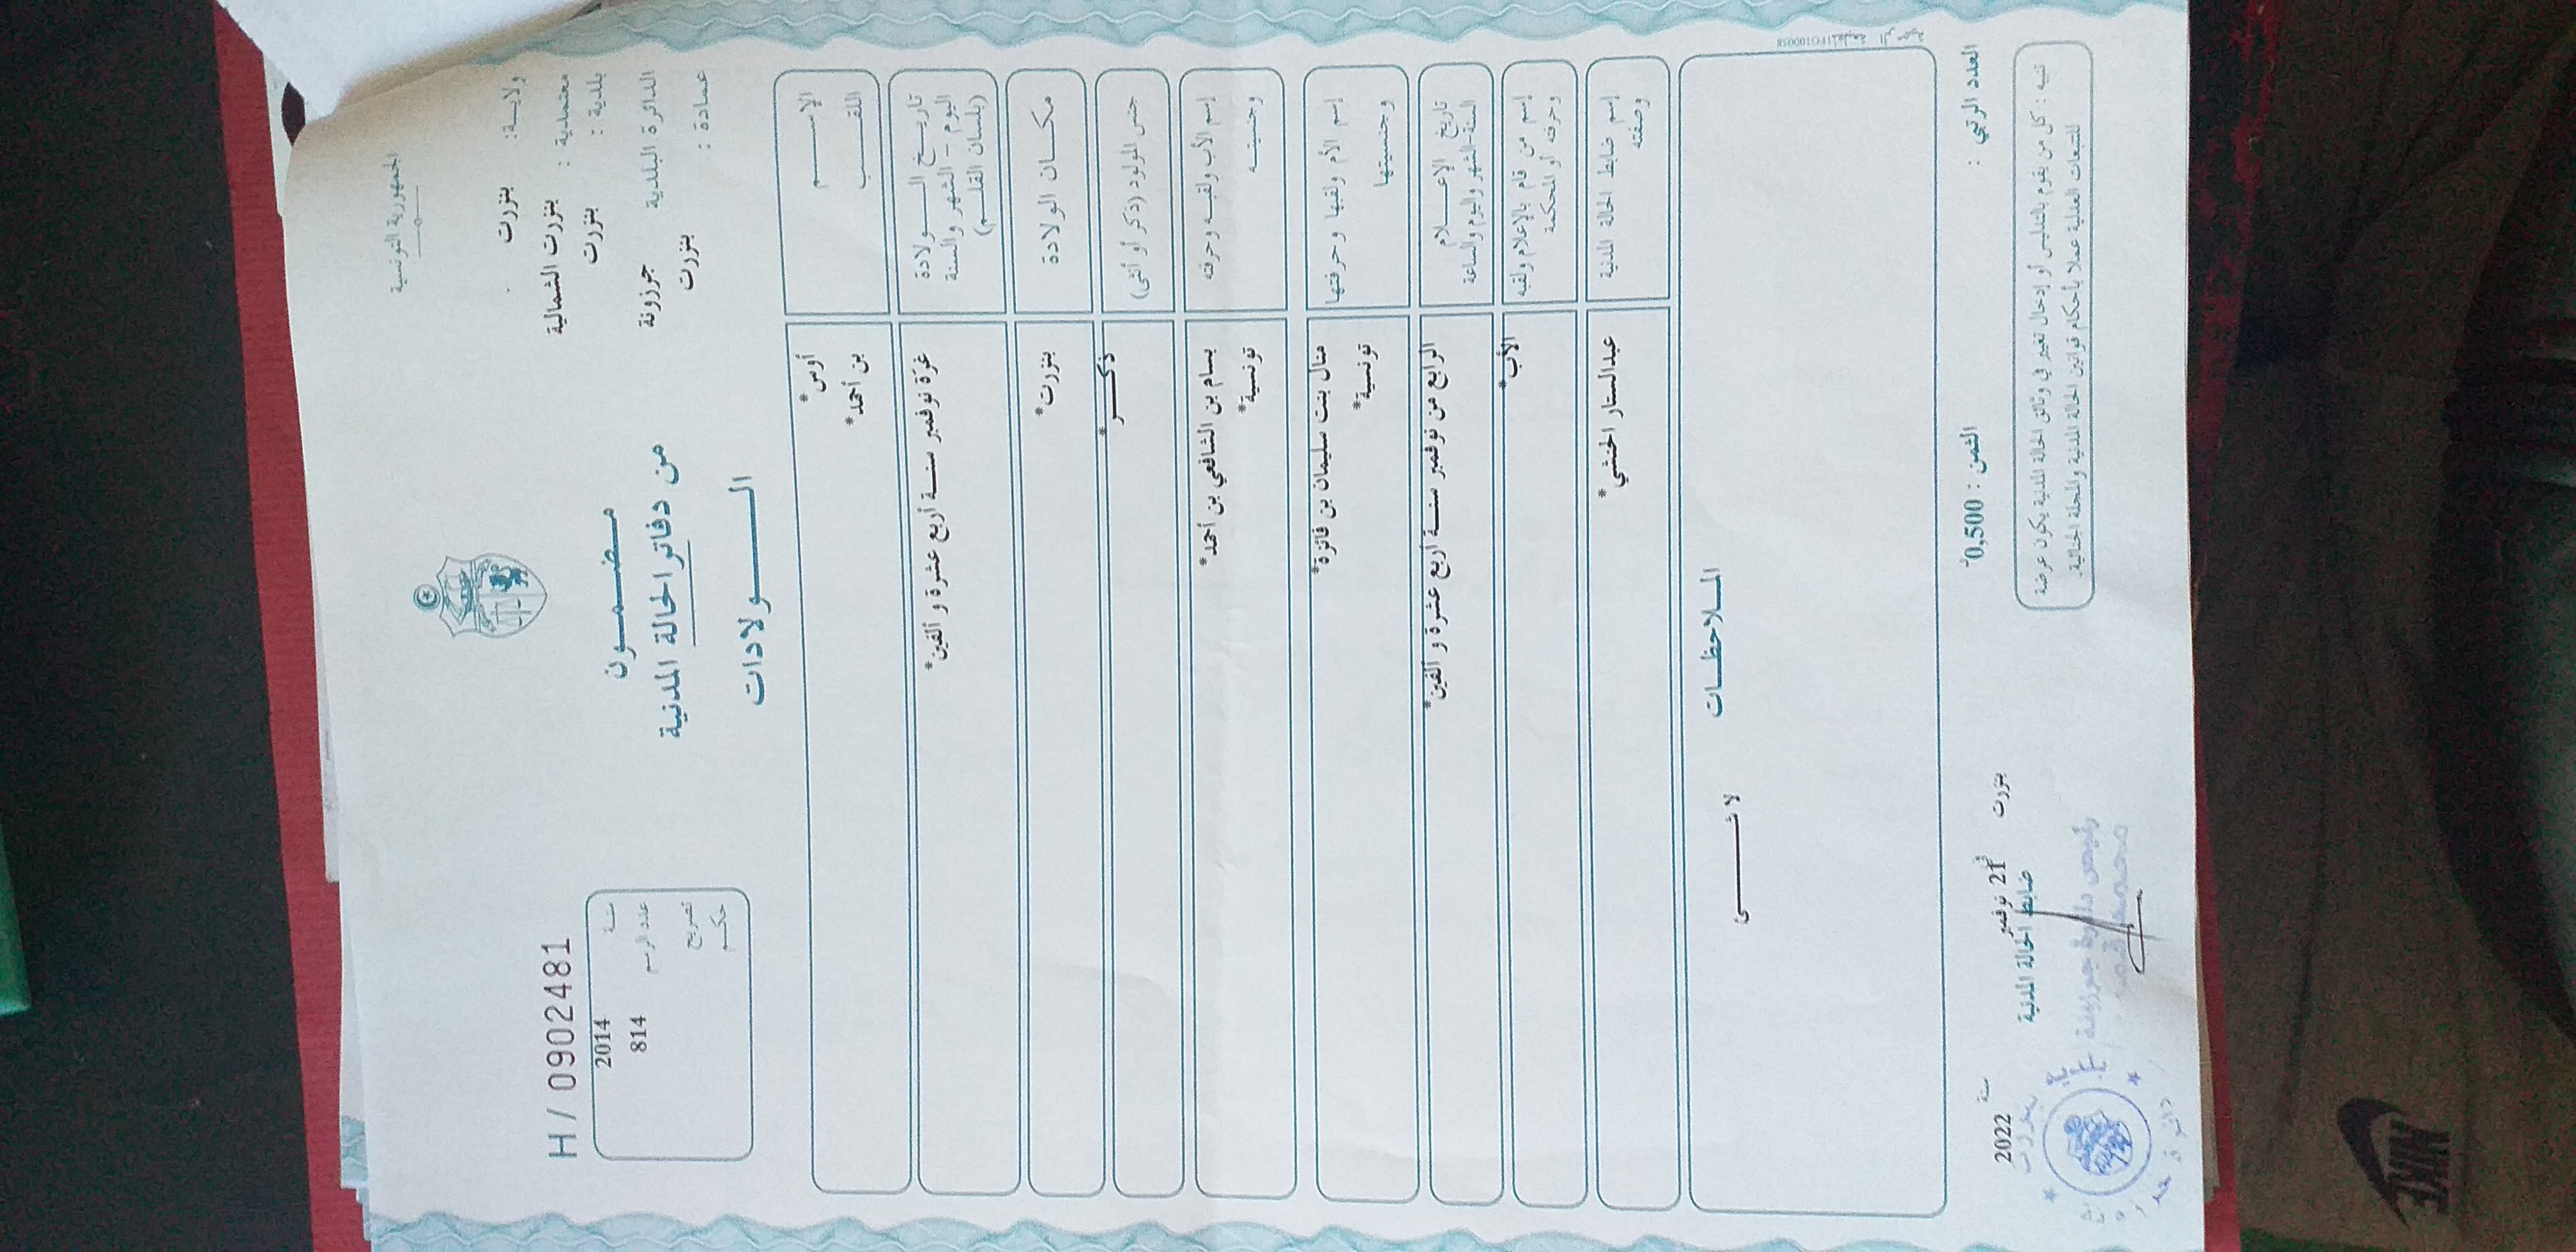 الجمهورية التونسية
ولايـــة: بنزرت
معتمدية : بنزرت الشمالية
بلدية : بنزرت
الدائرة البلدية جرزونة
عمادة : بنزرت
H / 0902481
سنة 2014
عدد الرسم 814
تصريح
حكم
مـضـمـون
من دفاتر الحالة المدنية
الـــولادات
الإســـم أوس*
اللقـــب بن أحمد*
تاريـــخ الـــولادة
اليوم – الشهر والسنة
(بلسان القلـــم)
غرّة نوفمبر سنـــة أربع عشرة و ألفين*
مكـــان الولادة بنزرت*
جنس المولود (ذكر أو أنثى) ذكـــر*
إسم الأب ولقبـه وحرفته بسام بن الشافعي بن أحمد*
وجنسيتـــه تونسية*
إسم الأم ولقبها وحرفتها منال بنت سليمان بن فائزة*
وجنسيتها تونسية*
تاريخ الإعـــلام
السنة-الشهر واليوم والساعة
الرابع من نوفمبر سنـــة أربع عشرة و ألفين*
إسم من قام بالإعلام ولقبه
وحرفته أو المحكمة
الأب*
إسم ضابط الحالة المدنية
وصفته
عبدالستار الخنشي*
المـــلاحظـــات
لا شـــئ
العدد الرتبي :
الثمن : 0,500
بنزرت في 21 نوفمبر سنة 2022
ضابط الحالة المدنية
تنبيه : كل من يقوم بالتدليس أو إدخال تغيير في وثائق الحالة المدنية يكون عرضة
للتتبعات العدلية عملا بأحكام قوانين الحالة المدنية والمجلة الجنائية.
NIKE